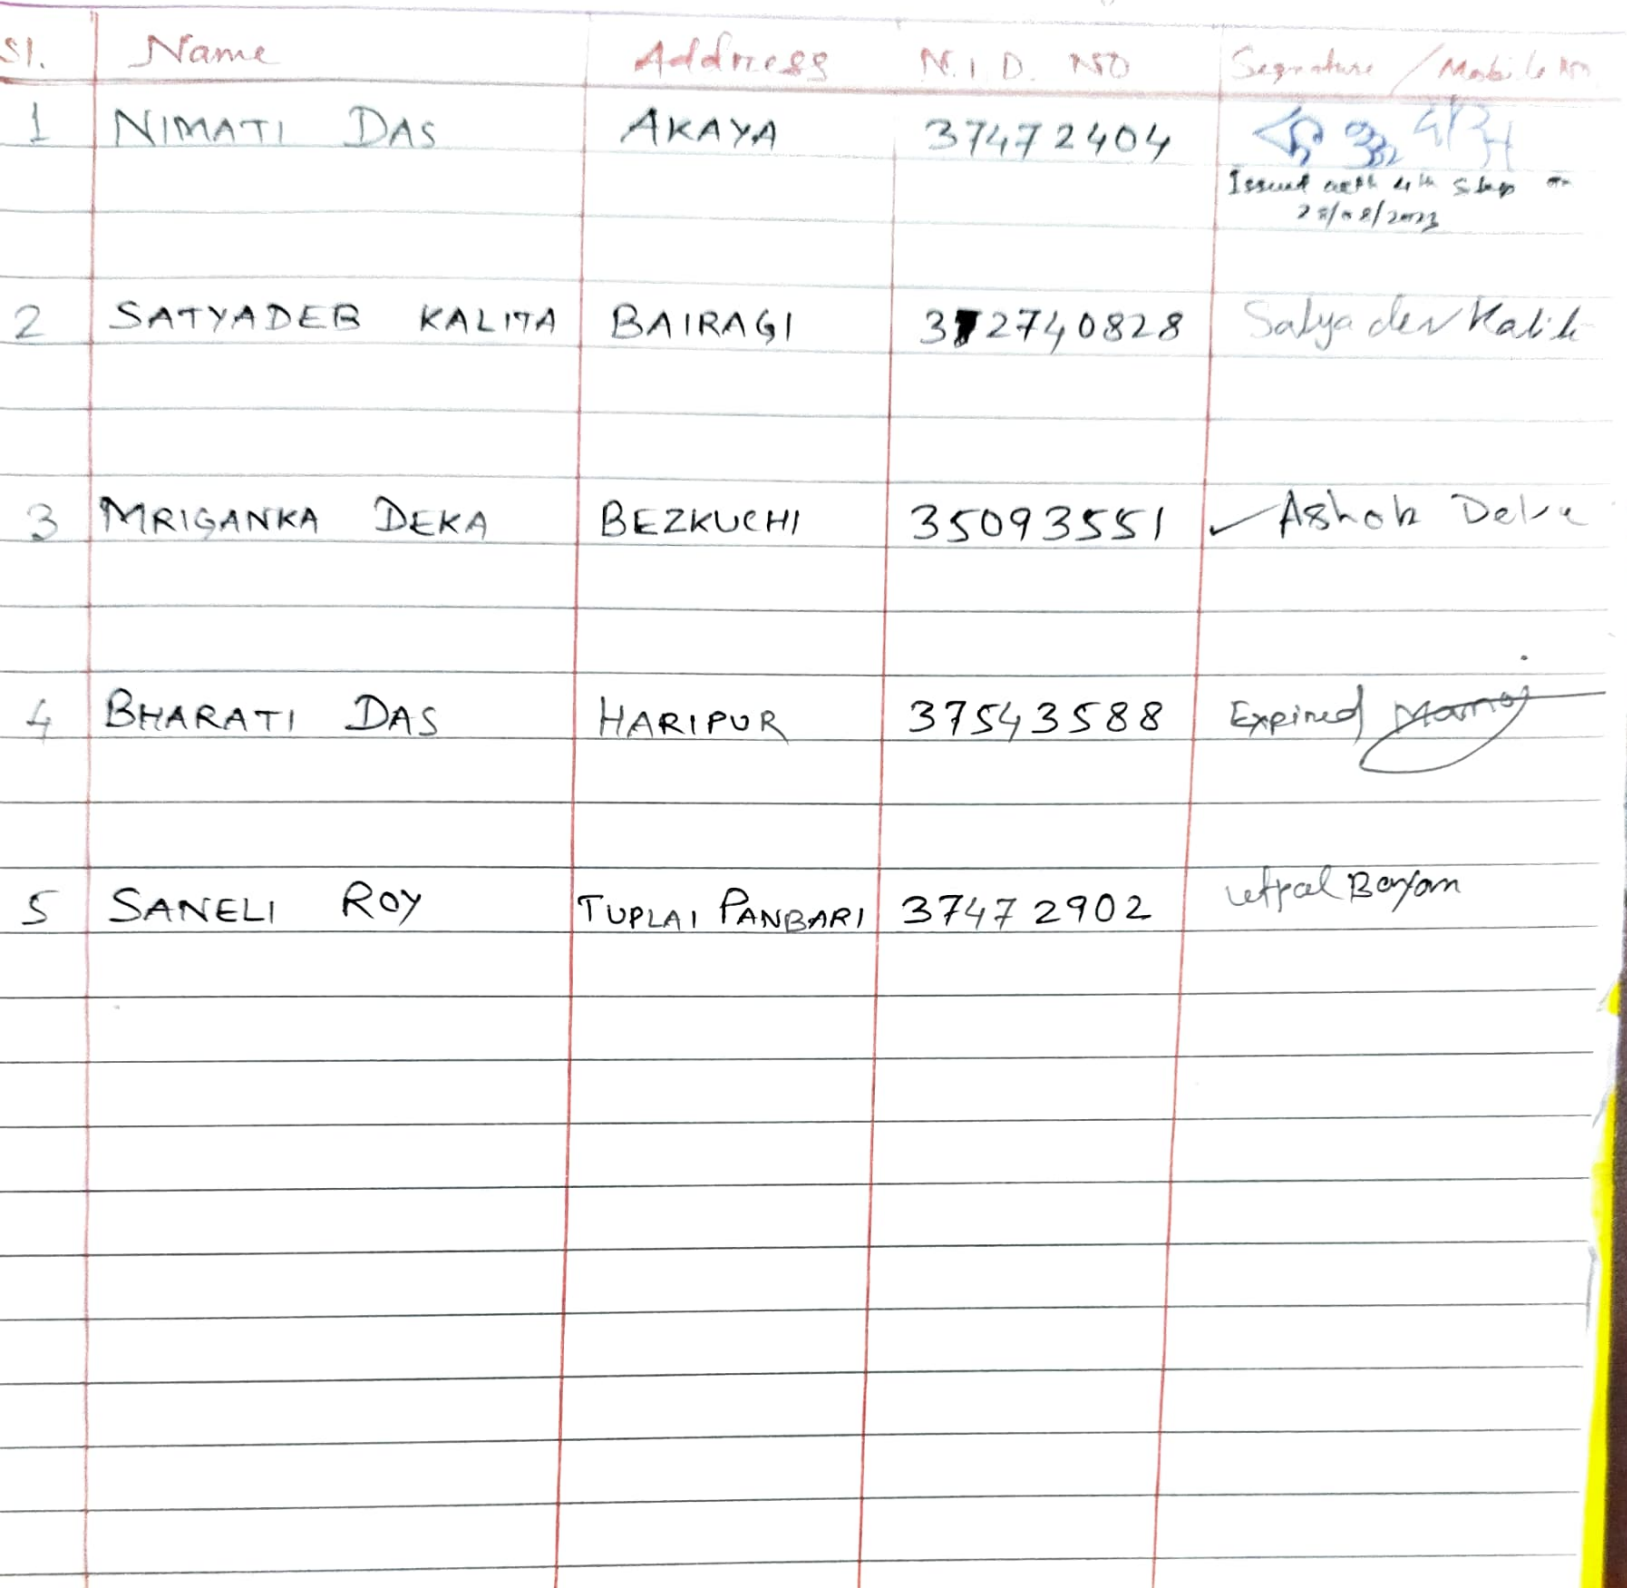 Sl. Name Address N.I.D. NO Segnature / Mobile No
1 NIMATI DAS AKAYA 37472404
Issued with 4th slip on
28/08/2023
2 SATYADEB KALITA BAIRAGI 372740828 Satyadev Kalit
3 MRIGANKA DEKA BEZKUCHI 35093551 ✓ Ashok Deka
4 BHARATI DAS HARIPUR 37543588 Expired Manoj
5 SANELI ROY TUPLAI PANBARI 37472902 Utpal Bayan